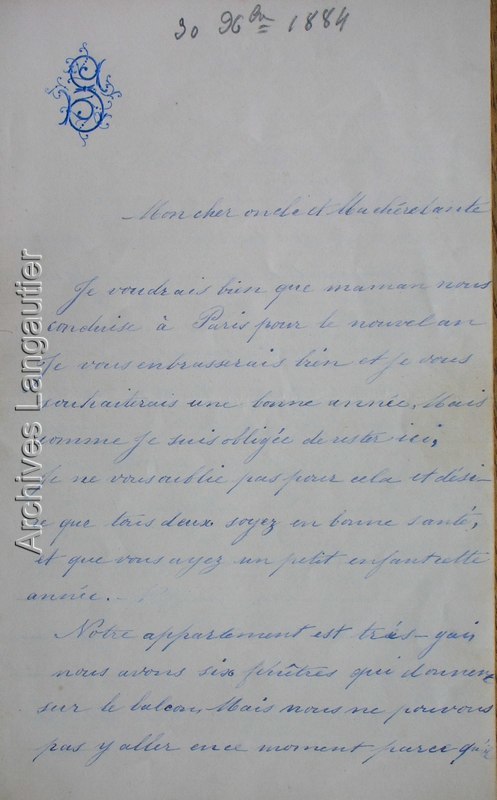 30 Xbre 1884
Mon cher oncle et Ma chère tante
Je voudrais bien que maman nous
conduise à Paris pour le nouvel an
Je vous enbrasserais bien et je vous
souhaiterais une bonne année. Mais
comme Je suis obligée de rester ici,
Je ne vous oublie pas pour cela et dési-
re que tous deux soyez en bonne santé,
et que vous ayez un petit enfant cette
année. -
Notre appartement est très-gai,
nous avons six fenêtres qui donnent
sur le balcon, Mais nous ne pouvons
pas y aller en ce moment parce qu'il
Archives Langautier